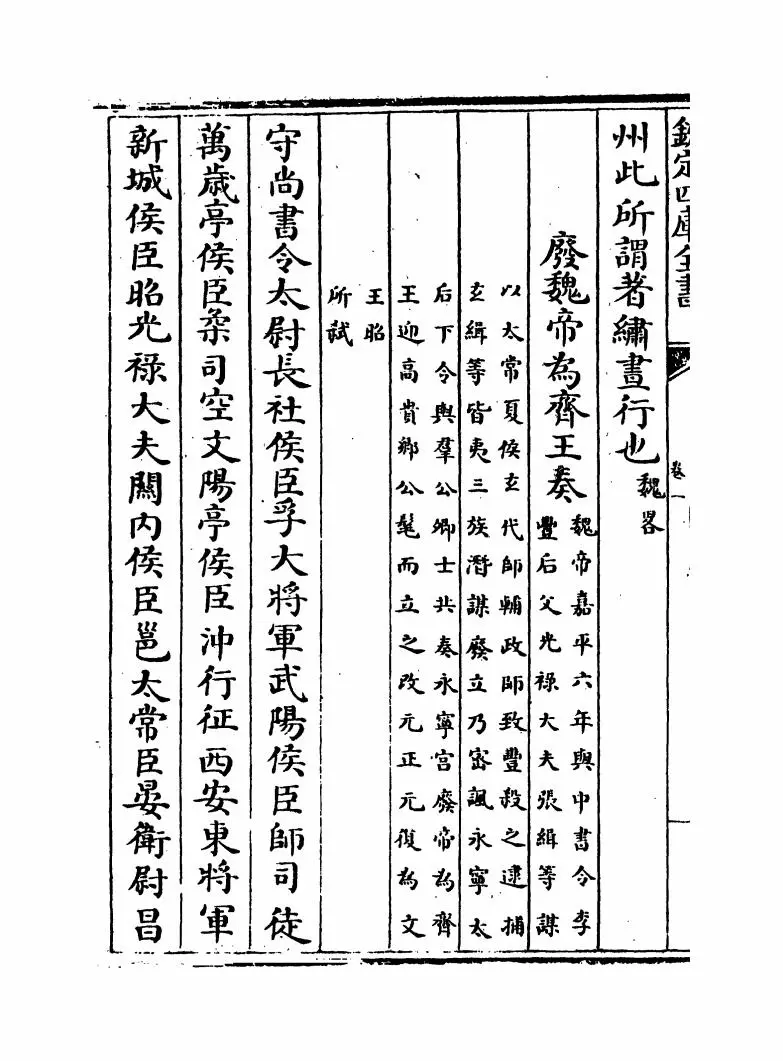 欽定四庫全書
卷一
州此所謂著繡晝行也魏畧
廢魏帝為齊王奏魏帝嘉平六年與中書令李
豐后父光祿大夫張緝等謀
以太常夏侯玄代師輔政師致豐殺之逮捕
玄緝等皆夷三族潛謀廢立乃宻諷永寧太
后下令與羣公卿士共奏永寧宫廢帝為齊
王迎高貴鄉公髦而立之改元正元復為文
王昭
所弑
守尚書令太尉長社侯臣孚大將軍武陽侯臣師司徒
萬歳亭侯臣柔司空文陽亭侯臣沖行征西安東將軍
新城侯臣昭光祿大夫闗内侯臣邕太常臣晏衛尉昌